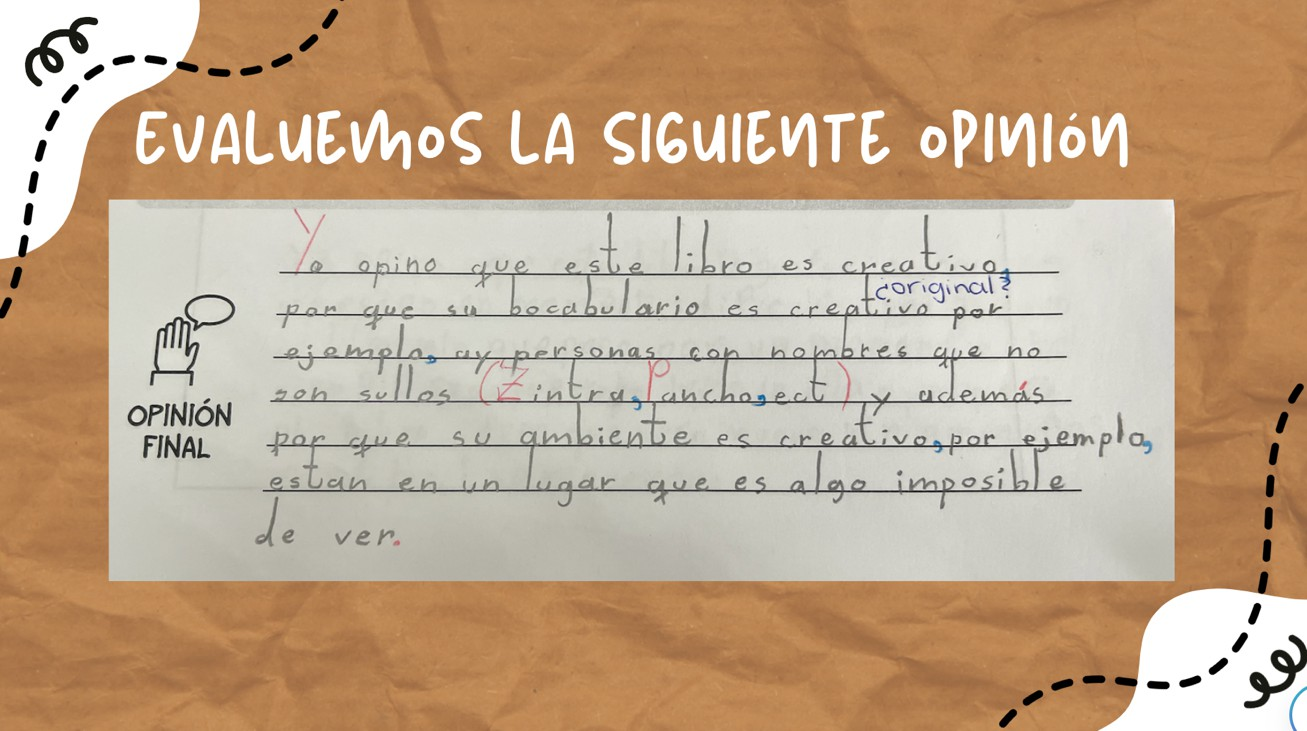 EVALUEMOS LA SIGUIENTE OPINIÓN
Yo opino que este libro es creativo,
¿original?
por que su bocabulario es creativo por
ejemplo, ay personas con nombres que no
son sullos (Zintra, Pancho, ect) y además
por que su ambiente es creativo, por ejemplo,
estan en un lugar que es algo imposible
de ver.
OPINIÓN
FINAL